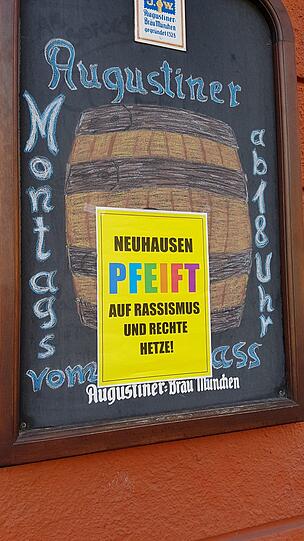 Augustiner-
Bräu München
gegründet 1328
Augustiner
Montags
ab 18 Uhr
NEUHAUSEN
PFEIFT
AUF RASSISMUS
UND RECHTE
HETZE!
vom
ass
Augustiner-Bräu München